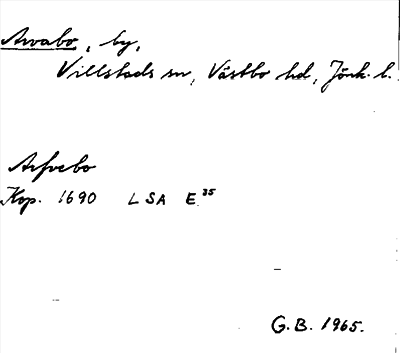 Arvabo, by,
Villstads sn, Västbo hd, Jönk. l.
Arfvebo
Kop. 1690 LSA E.35
G.B. 1965.